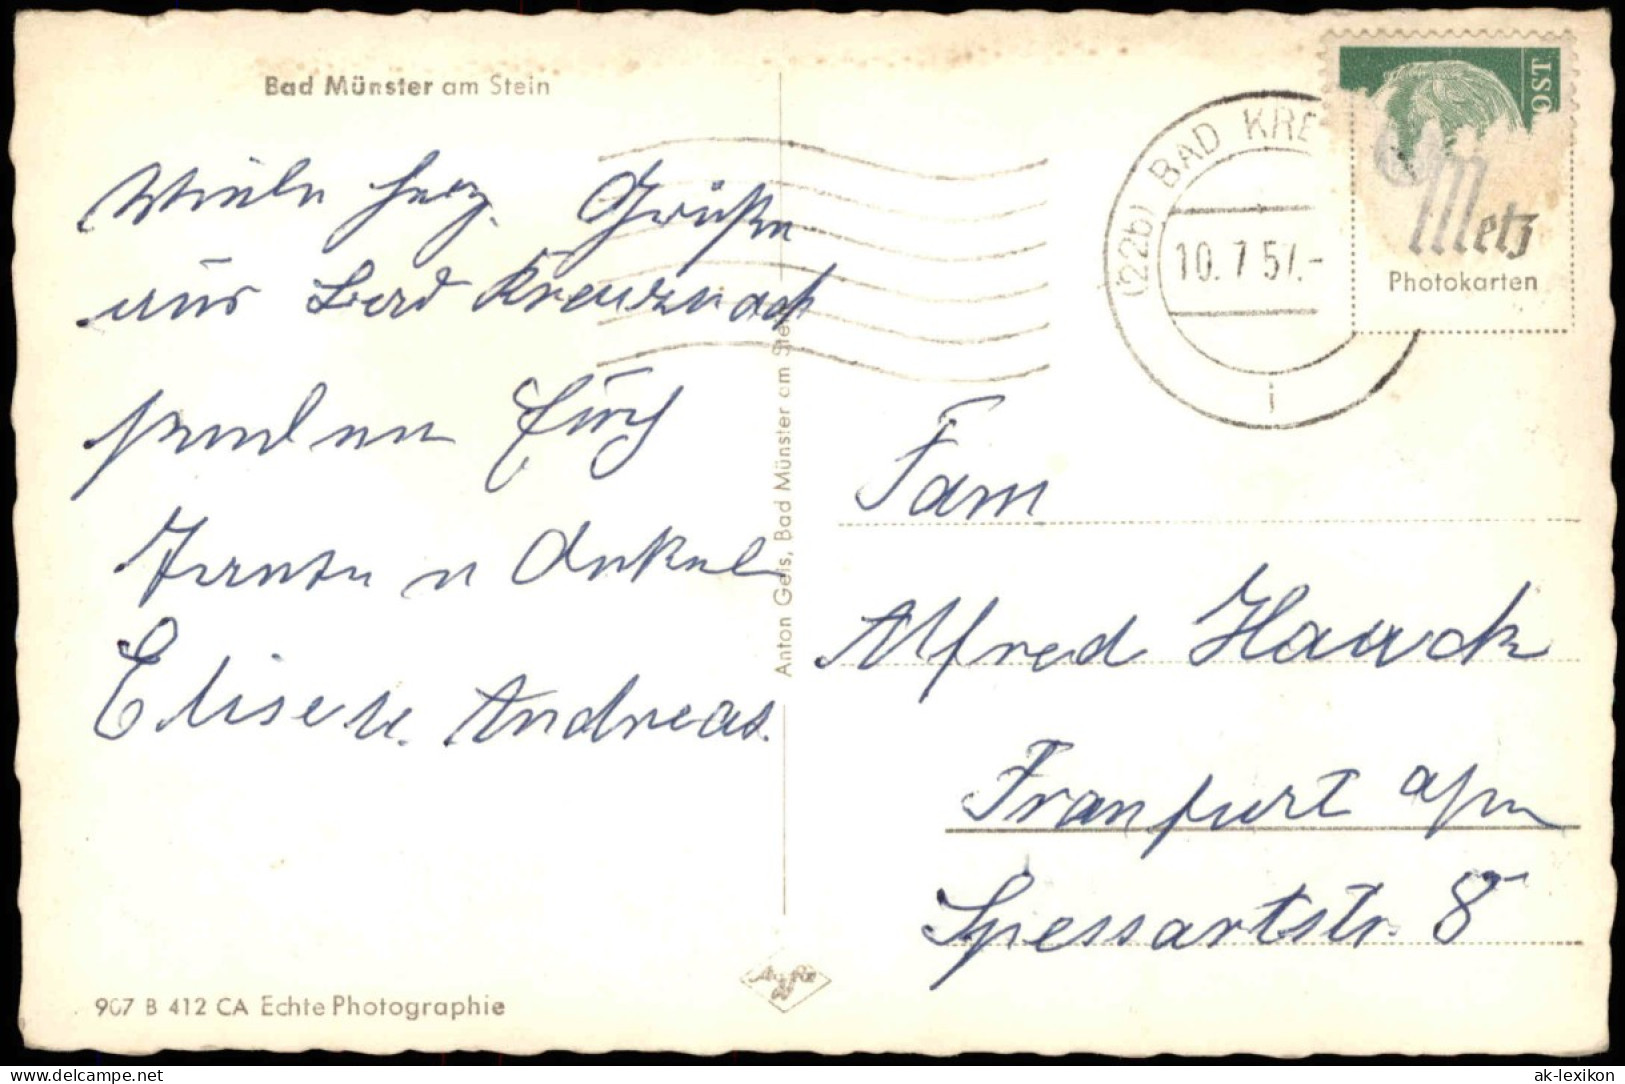 Bad Münster am Stein
Viele herz. Grüße
aus Bad Kreuznach
senden Euch
Tante u Onkel
Elise u. Andreas.
907 B 412 CA Echte Photographie
Anton Geis, Bad Münster am Stein
(22b) BAD KRE
10.7.57.-
i
OST
Metz
Photokarten
Fam
Alfred Haack
Franfurt a/m
Spessartstr. 8
delcampe.net
ak-lexikon